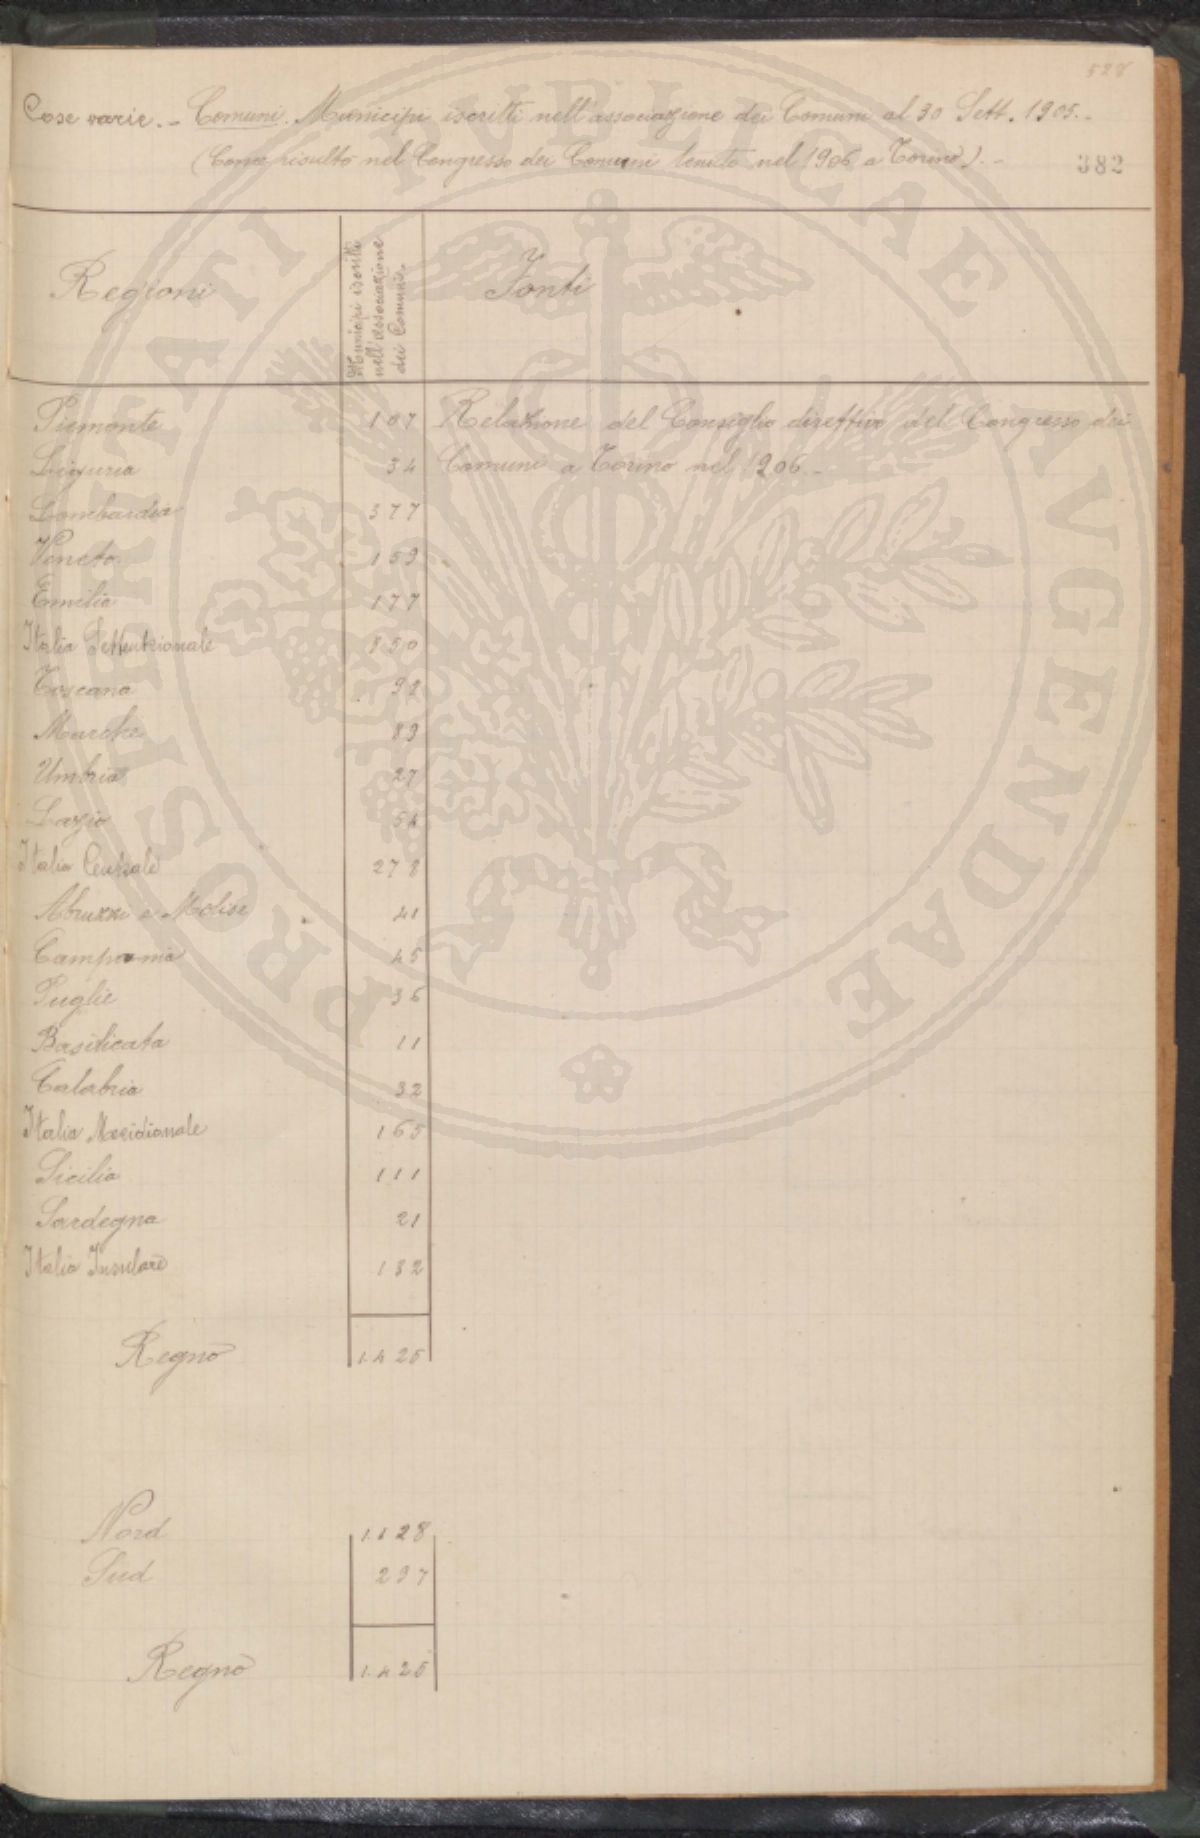 528
Cose varie. - Comuni. Municipi iscritti nell'associazione dei Comuni al 30 Sett. 1905. -
(Come risultò nel Congresso dei Comuni tenuto nel 1906 a Torino). -
382
Regioni
Municipi iscritti
nell'associazione
dei Comuni.
Fonti
Piemonte 107 Relazione del Consiglio direttivo del Congresso dei
Liguria 34 Comuni a Torino nel 1906. -
Lombardia 377
Veneto 159
Emilia 177
Italia Settentrionale 850
Toscana 98
Marche 89
Umbria 27
Lazio 54
Italia Centrale 278
Abruzzi e Molise 41
Campania 45
Puglie 36
Basilicata 11
Calabria 32
Italia Meridionale 165
Sicilia 111
Sardegna 21
Italia Insulare 132
Regno 1.425
Nord 1.128
Sud 297
Regno 1.425
PROSPERITATI PVBLICAE AVGENDAE